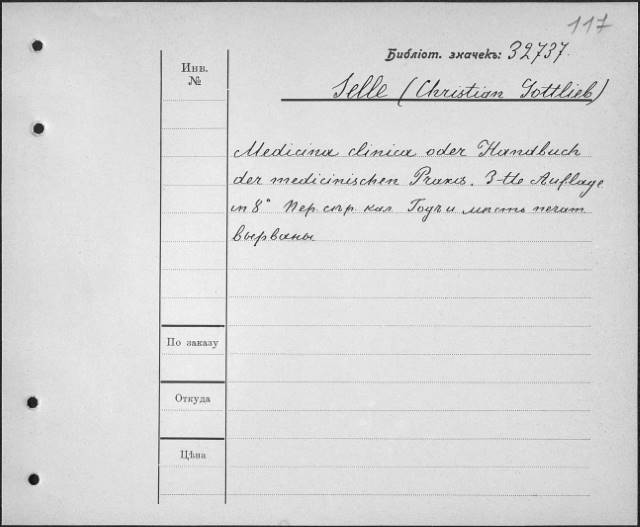 117
Библіот. значекъ: 32737.
Инв.
№
Selle (Christian Gottlieb)
Medicina clinica oder Handbuch
der medicinischen Praxis. 3-tte Auflage
in 8° Пер. стр. кал. Годъ и мѣсто печат
вырваны
По заказу
Откуда
Цѣна